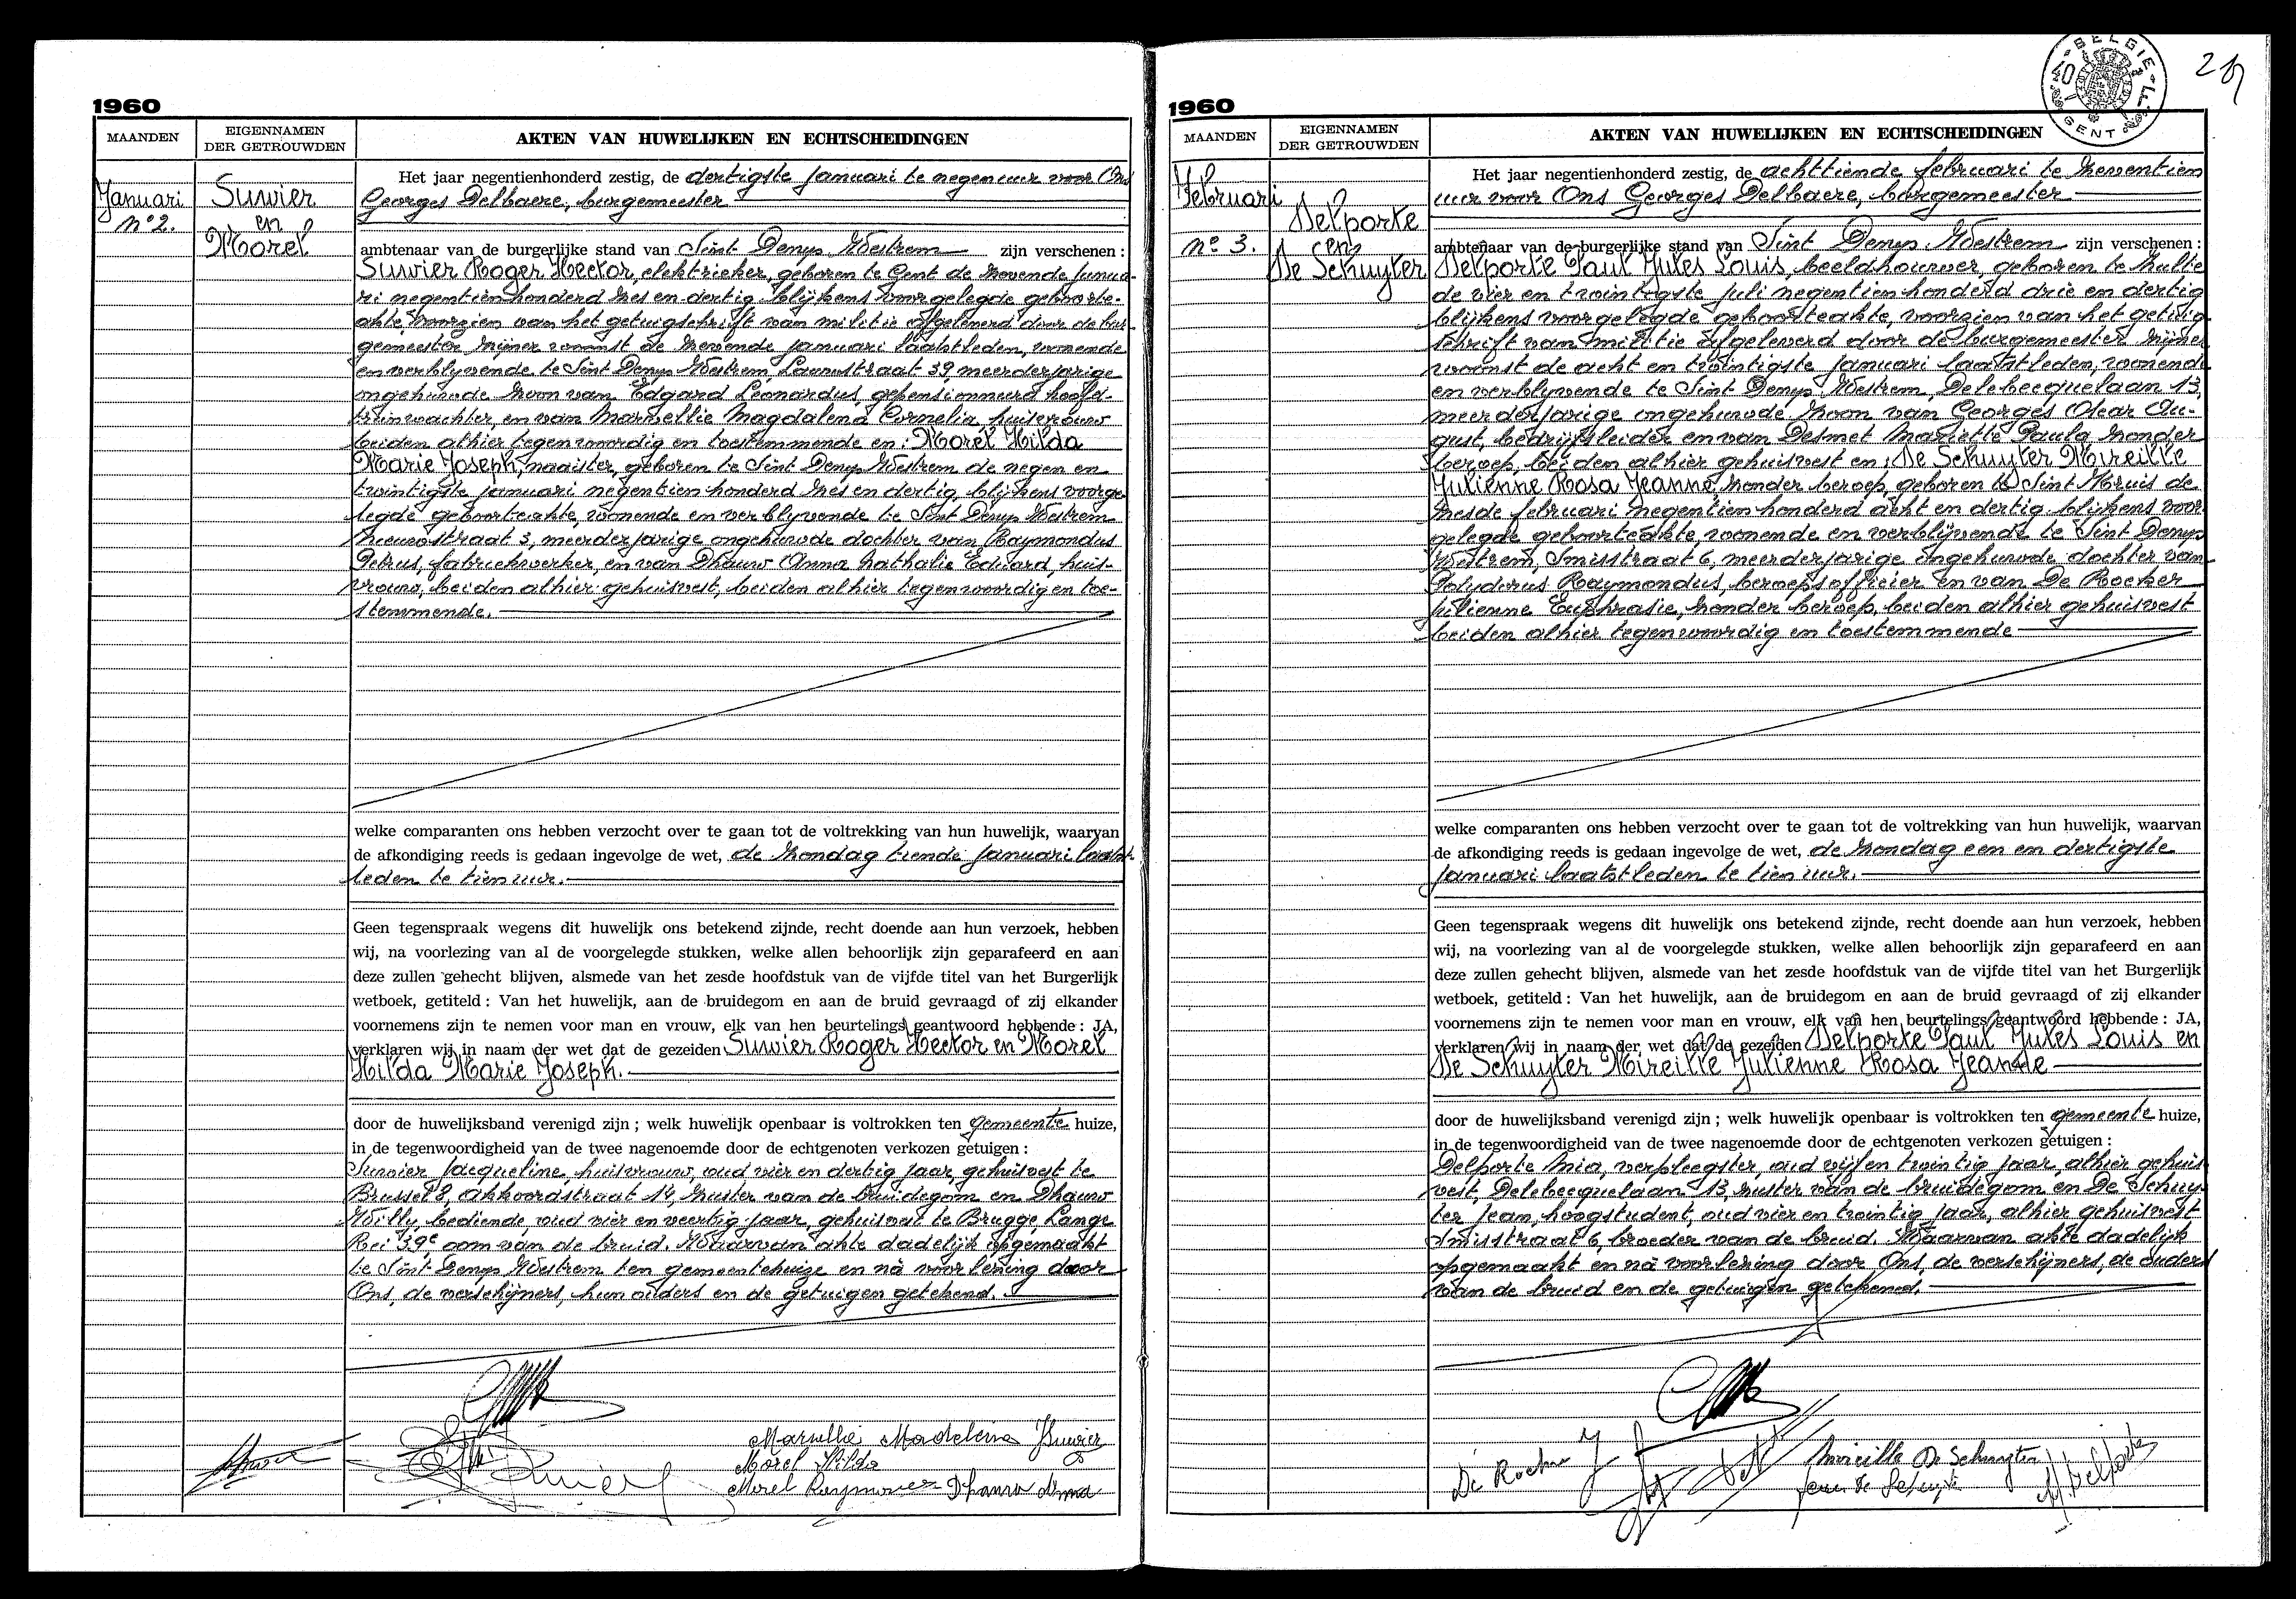 1960
MAANDEN
EIGENNAMEN
DER GETROUWDEN
AKTEN VAN HUWELIJKEN EN ECHTSCHEIDINGEN
Januari
n° 2.
Suwier
en
Morel
Het jaar negentienhonderd zestig, de dertigste Januari te negen uur voor Ons
Georges Delbaere, burgemeester
ambtenaar van de burgerlijke stand van Sint Denys Westrem zijn verschenen :
Suwier Roger Hector, elektrieker, geboren te Gent de zevende Janua-
ri negentienhonderd zes en dertig blijkens voorgelegde geboorte-
akte voorzien van het getuigschrift van militie afgeleverd door de bur-
gemeester zijner woonst de zevende Januari laatstleden, wonende
en verblyvende te Sint Denys Westrem, Lauwstraat 39, meerderjarige
ongehuwde zoon van Edgard Léonardus, gepensionneerd hoofd-
treinwachter, en van Marvellie Magdalena Cornelia, huisvrouw
beiden alhier tegenwoordig en toestemmende en : Morel Hilda
Marie Joseph, naaister, geboren te Sint Denys Westrem de negen en
twintigste Januari negentien honderd zes en dertig, blijkens voorge-
legde geboorteakte, wonende en verblyvende te Sint Denys Westrem
Nieuwstraat 3, meerderjarige ongehuwde dochter van Raymondus
Petrus, fabriekwerker, en van Dhauw Anna Nathalie Eduard, huis-
vrouw, beiden alhier gehuisvest, beiden alhier tegenwoordig en toe-
stemmende.
welke comparanten ons hebben verzocht over te gaan tot de voltrekking van hun huwelijk, waarvan
de afkondiging reeds is gedaan ingevolge de wet, de zondag tiende Januari laatst-
leden te tien uur.
Geen tegenspraak wegens dit huwelijk ons betekend zijnde, recht doende aan hun verzoek, hebben
wij, na voorlezing van al de voorgelegde stukken, welke allen behoorlijk zijn geparafeerd en aan
deze zullen gehecht blijven, alsmede van het zesde hoofdstuk van de vijfde titel van het Burgerlijk
wetboek, getiteld : Van het huwelijk, aan de bruidegom en aan de bruid gevraagd of zij elkander
voornemens zijn te nemen voor man en vrouw, elk van hen beurtelings geantwoord hebbende : JA,
verklaren wij in naam der wet dat de gezeiden Suwier Roger Hector en Morel
Hilda Marie Joseph.
door de huwelijksband verenigd zijn ; welk huwelijk openbaar is voltrokken ten gemeente huize,
in de tegenwoordigheid van de twee nagenoemde door de echtgenoten verkozen getuigen :
Suwier Jacqueline, huisvrouw, oud vier en dertig jaar, gehuisvest te
Brussel 8, akkoordstraat 14, zuster van de bruidegom en Dhauw
Willy, bediende, oud vier en veertig jaar, gehuisvest te Brugge Lange
Rei 39e, oom van de bruid. Waarvan akte dadelijk opgemaakt
te Sint Denys Westrem ten gemeentehuize en nà voorlezing door
Ons, de verschijners, hun ouders en de getuigen getekend.
Marvellie Madeleina JSuwier
Morel Hilda
Morel Raymond Dhauw Anna
1960
BELGIE
40
GENT
MAANDEN
EIGENNAMEN
DER GETROUWDEN
AKTEN VAN HUWELIJKEN EN ECHTSCHEIDINGEN
Februari
n° 3.
Delporte
en
De Schuyter
Het jaar negentienhonderd zestig, de achttiende februari te zeventien
uur voor Ons Georges Delbaere, burgemeester
ambtenaar van de burgerlijke stand van Sint Denys Westrem zijn verschenen :
Delporte Paul Jules Louis, beeldhouwer, geboren te Zulte
de vier en twintigste juli negentien honderd drie en dertig
blijkens voorgelegde geboorteakte, voorzien van het getuig-
schrift van militie afgeleverd door de burgemeester zijner
woonst de acht en twintigste Januari laatstleden, wonende
en verblyvende te Sint Denys Westrem, Delebecquelaan 13,
meerderjarige ongehuwde zoon van Georges Oscar Au-
gust, bedrijfsleider en van Desmet Mariette Paula zonder
beroep, beiden alhier gehuisvest en : De Schuyter Mireille
Julienne Rosa Jeanne, zonder beroep, geboren te Sint Kruis de
zesde februari negentien honderd acht en dertig blijkens voor
gelegde geboorteakte, wonende en verblijvende te Sint Denys
Westrem, Smisstraat 6, meerderjarige ongehuwde dochter van
Polydorus Raymondus, beroepsofficier en van De Rocker
Julienne Euphrasie, zonder beroep, beiden alhier gehuisvest
beiden alhier tegenwoordig en toestemmende
welke comparanten ons hebben verzocht over te gaan tot de voltrekking van hun huwelijk, waarvan
de afkondiging reeds is gedaan ingevolge de wet, de zondag een en dertigste
Januari laatstleden te tien uur.
Geen tegenspraak wegens dit huwelijk ons betekend zijnde, recht doende aan hun verzoek, hebben
wij, na voorlezing van al de voorgelegde stukken, welke allen behoorlijk zijn geparafeerd en aan
deze zullen gehecht blijven, alsmede van het zesde hoofdstuk van de vijfde titel van het Burgerlijk
wetboek, getiteld : Van het huwelijk, aan de bruidegom en aan de bruid gevraagd of zij elkander
voornemens zijn te nemen voor man en vrouw, elk van hen beurtelings geantwoord hebbende : JA,
verklaren wij in naam der wet dat de gezeiden Delporte Paul Jules Louis en
De Schuyter Mireille Julienne Rosa Jeanne
door de huwelijksband verenigd zijn ; welk huwelijk openbaar is voltrokken ten gemeente huize,
in de tegenwoordigheid van de twee nagenoemde door de echtgenoten verkozen getuigen :
Delporte Mia, verpleegster, oud vijf en twintig jaar, alhier gehuis
vest, Delebecquelaan 13, zuster van de bruidegom en De Schuy-
ter Jean, hoogstudent, oud vier en twintig jaar, alhier gehuisvest
Smisstraat 6, broeder van de bruid. Waarvan akte dadelijk
opgemaakt en nà voorlezing door Ons, de verschijners, de ouders
van de bruid en de getuigen getekend.
De Rocker J
Mireille De Schuyter
Jean De Schuyter
M Delporte